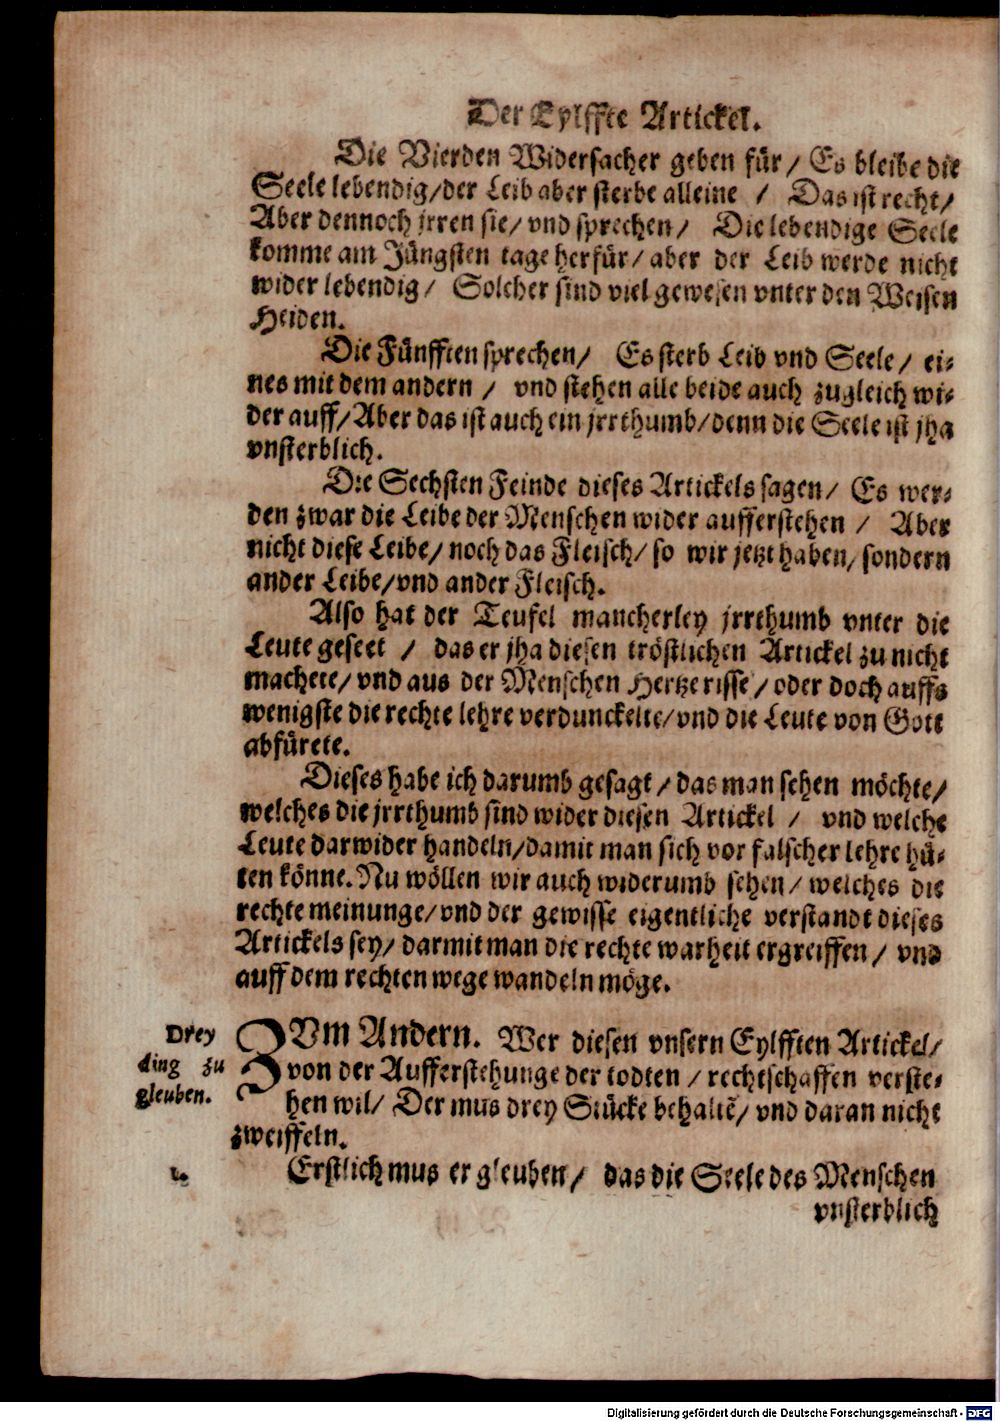 Der Eylffte Artickel.
Die Vierden Widersacher geben für / Es bleibe die
Seele lebendig / der Leib aber sterbe alleine / Das ist recht /
Aber dennoch jrren sie / vnd sprechen / Die lebendige Seele
komme am Jüngsten tage herfür / aber der Leib werde nicht
wider lebendig / Solcher sind viel gewesen vnter den Weisen
Heiden.
Die Fünfften sprechen / Es sterb Leib vnd Seele / ei-
nes mit dem andern / vnd stehen alle beide auch zugleich wi-
der auff / Aber das ist auch ein jrrthumb / denn die Seele ist jha
vnsterblich.
Die Sechsten Feinde dieses Artickels sagen / Es wer-
den zwar die Leibe der Menschen wider aufferstehen / Aber
nicht diese Leibe / noch das Fleisch / so wir jetzt haben / sondern
ander Leibe / vnd ander Fleisch.
Also hat der Teufel mancherley jrrthumb vnter die
Leute geseet / das er jha diesen tröstlichen Artickel zu nicht
machete / vnd aus der Menschen Hertze risse / oder doch auffs
wenigste die rechte lehre verdunckelte / vnd die Leute von Gott
abfürete.
Dieses habe ich darumb gesagt / das man sehen möchte /
welches die jrrthumb sind wider diesen Artickel / vnd welche
Leute darwider handeln / damit man sich vor falscher lehre hü-
ten könne. Nu wöllen wir auch widerumb sehen / welches die
rechte meinunge / vnd der gewisse eigentliche verstandt dieses
Artickels sey / darmit man die rechte warheit ergreiffen / vnd
auff dem rechten wege wandeln möge.
Drey
ding zu
gleuben.
ZVm Andern. Wer diesen vnsern Eylfften Artickel /
von der Aufferstehunge der todten / rechtschaffen verste-
hen wil / Der mus drey Stücke behaltẽ / vnd daran nicht
zweiffeln.
1.
Erstlich mus er gleuben / das die Seele des Menschen
vnsterblich
Digitalisierung gefördert durch die Deutsche Forschungsgemeinschaft - DFG